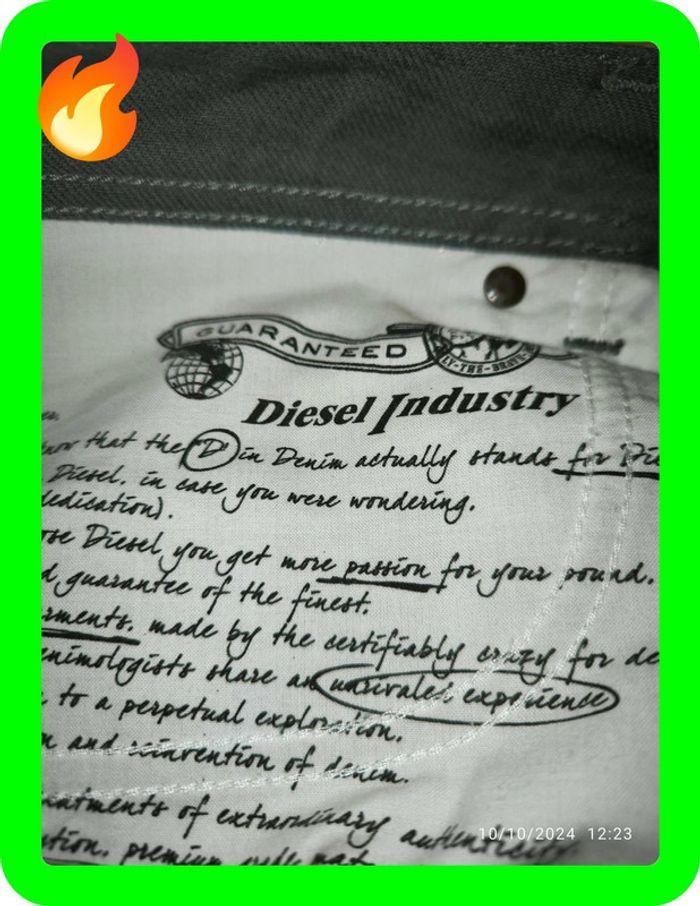 GUARANTEED
LY-THE-BRAVE
Diesel Industry
that the "D" in Denim actually stands for Die
Diesel, in case you were wondering.
dedication).
ose Diesel you get more passion for your pound.
d guarantee of the finest.
rments, made by the certifiably crazy for de
enimologists share an unrivaled experience
to a perpetual exploration.
n and reinvention of denim.
eatments of extraordinary authenticity
ation, premium
10/10/2024 12:23